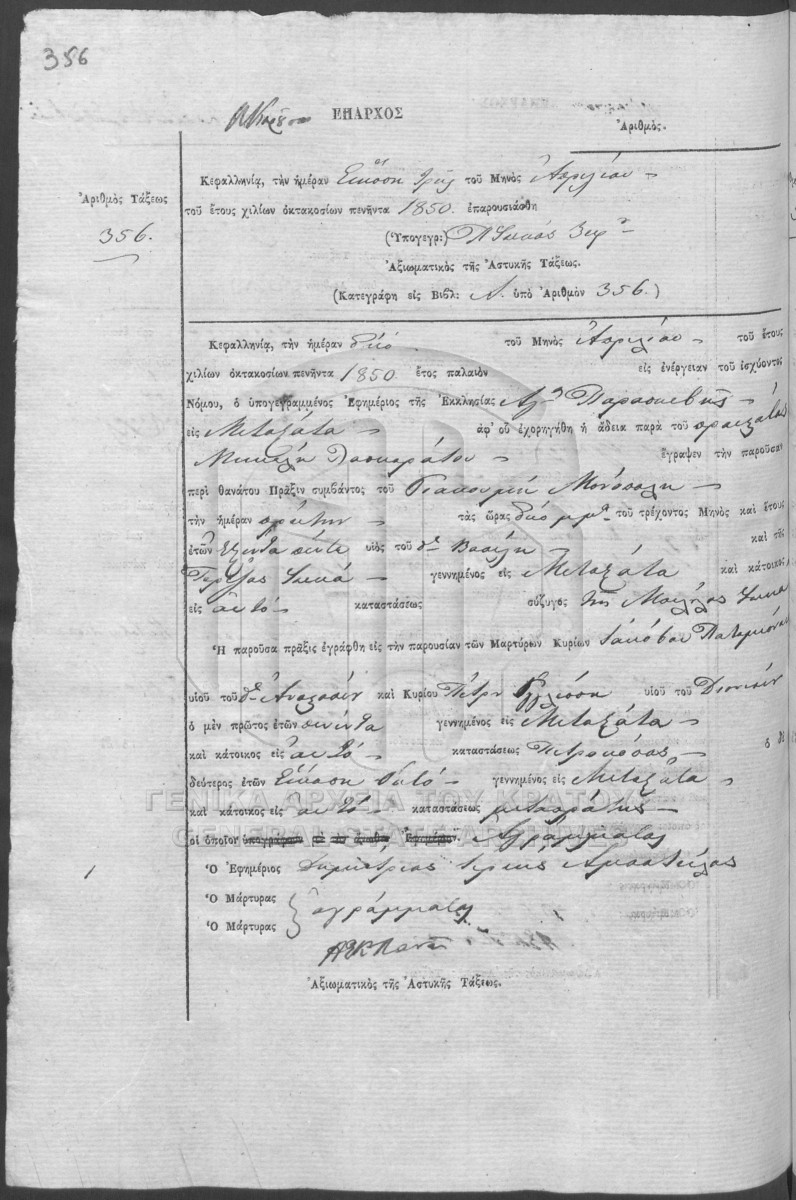 356
ΕΠΑΡΧΟΣ
Ἀριθμὸς.
Κεφαλληνίᾳ, τὴν ἡμέραν Εἴκοση τρῆς τοῦ Μηνὸς Ἀπριλίου
Ἀριθμὸς Τάξεως
τοῦ ἔτους χιλίων ὀκτακοσίων πενῆντα 1850. ἐπαρουσιάσθη
356.
(Ὑπογεγρ:)
Ἀξιωματικὸς τῆς Ἀστυκῆς Τάξεως.
(Κατεγράφη εἰς Βιβλ: Α. ὑπὸ Ἀριθμὸν 356.)
Κεφαλληνίᾳ, τὴν ἡμέραν δύο τοῦ Μηνὸς Ἀπριλίου τοῦ ἔτους
χιλίων ὀκτακοσίων πενῆντα 1850. ἔτος παλαιὸν εἰς ἐνέργειαν τοῦ ἰσχύοντος
Νόμου, ὁ ὑπογεγραμμένος Ἐφημέριος τῆς Ἐκκλησίας Αγ. Παρασκευῆς
εἰς Μεταξάτα ἀφ' οὗ ἐχορηγήθη ἡ ἄδεια παρὰ τοῦ
Μικέλη Λασκαράτου ἔγραψεν τὴν παροῦσαν
περὶ θανάτου Πρᾶξιν συμβάντος τοῦ Γιακουμῆ
τὴν ἡμέραν πρώτην τὰς ὥρας δύο μμ. τοῦ τρέχοντος Μηνὸς καὶ ἔτους
ἐτῶν Εξῆντα πέντε υἱὸς τοῦ Βασίλη καὶ τῆς
γεννημένος εἰς Μεταξάτα καὶ κάτοικος
εἰς αυτό καταστάσεως σύζυγος της
Ἡ παροῦσα πρᾶξις ἐγράφθη εἰς τὴν παρουσίαν τῶν Μαρτύρων Κυρίων Ιακόβου
υἱοῦ τοῦ Αναστασίου καὶ Κυρίου Πέτρου υἱοῦ τοῦ Διονισίου
ὁ μὲν πρῶτος ἐτῶν πενίντα γεννημένος εἰς Μεταξάτα
καὶ κάτοικος εἰς αυτό καταστάσεως ὁ δὲ
δεύτερος ἐτῶν Είκοση Οκτό γεννημένος εἰς Μεταξάτα
καὶ κάτοικος εἰς αυτό καταστάσεως
ΓΕΝΙΚΑ ΑΡΧΕΙΑ ΤΟΥ ΚΡΑΤΟΥΣ
GENERAL STATE ARCHIVES
οἱ ὁποῖοι Αγράμματοι
Ὁ Ἐφημέριος Δημήτριος Ιερεύς
Ὁ Μάρτυρας
αγράμματοι
Ὁ Μάρτυρας
Ἀξιωματικὸς τῆς Ἀστυκῆς Τάξεως.